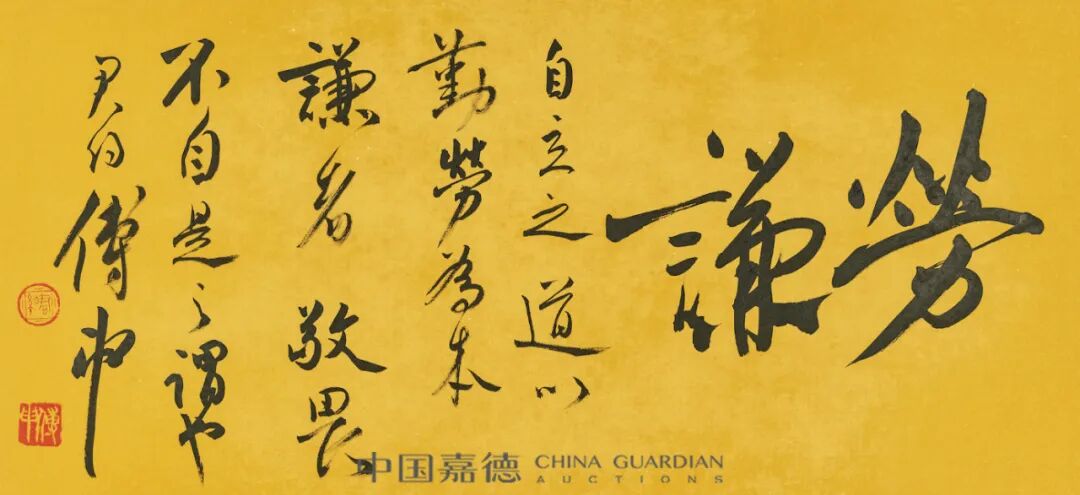 勞謙
自立之道以
勤勞為本
謙者敬畏
不自是之謂也
君約傅申
傅申
中国嘉德 CHINA GUARDIAN
AUCTIONS